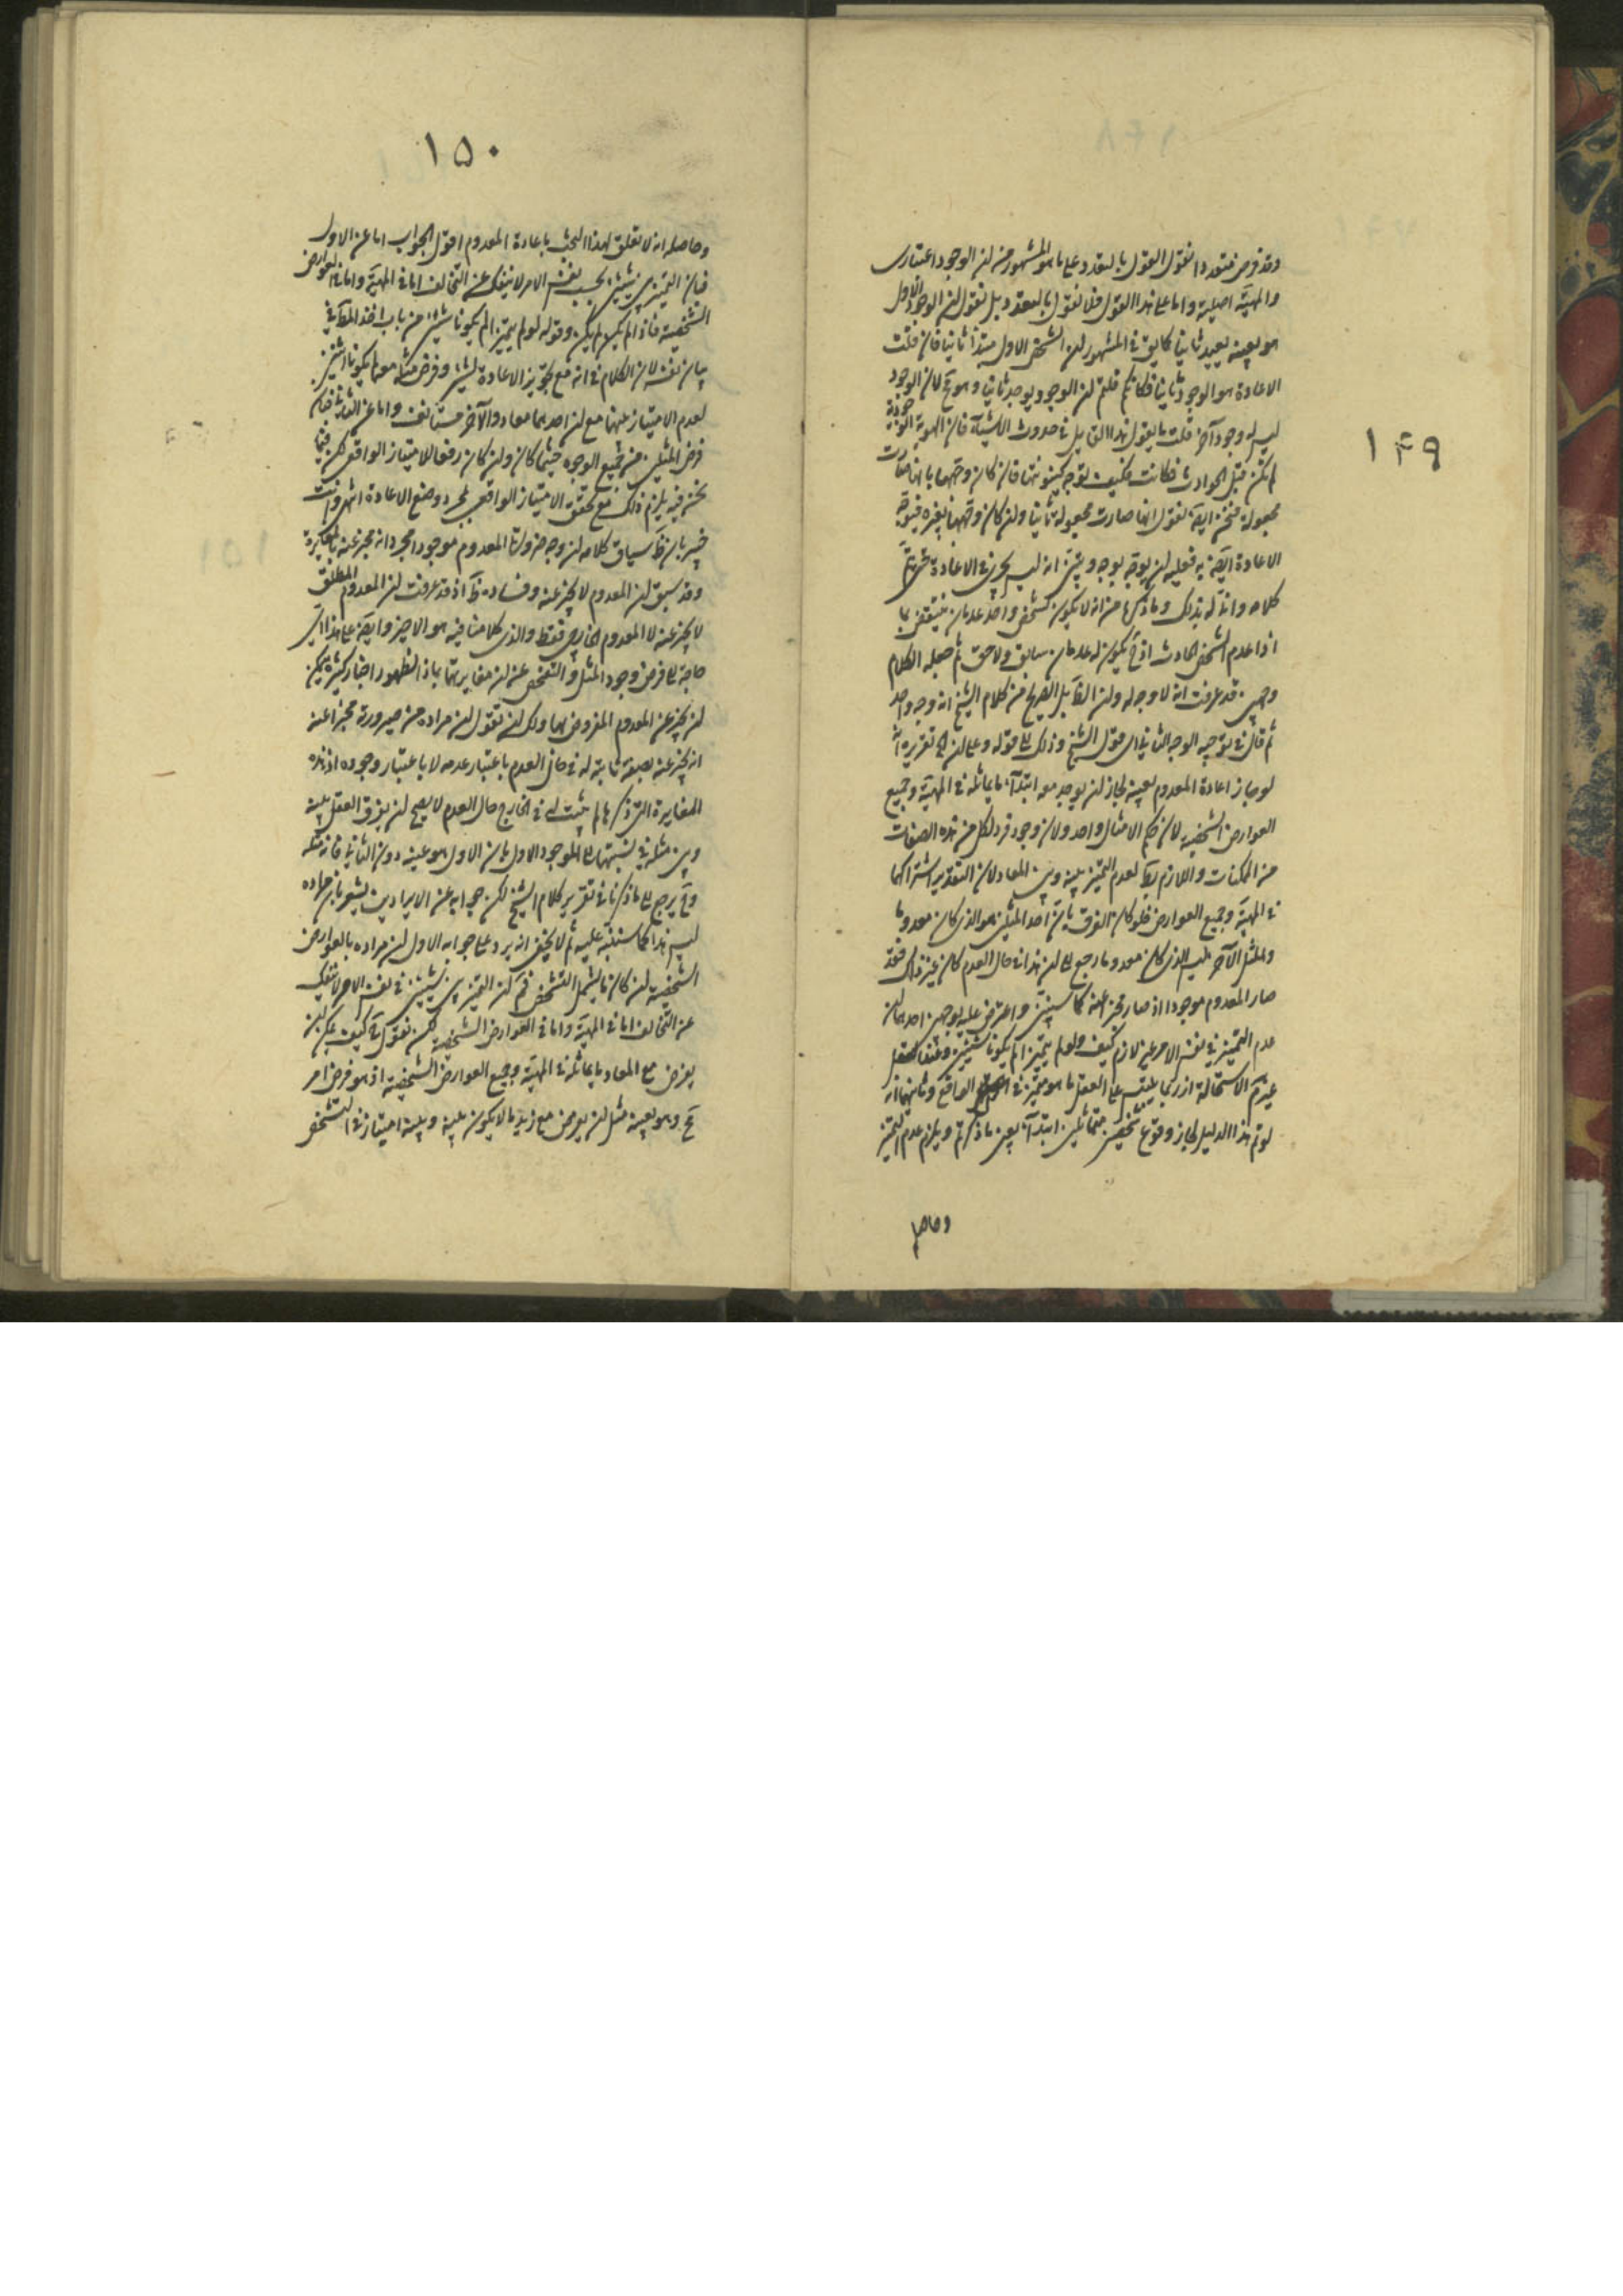 ١٤٩
وقد فرض متعددا نقول القول بالتعدد على ما هو المشهور من ان الوجود اعتباري
والمهية اصلية واما على هذا القول فلا نقول بالتعدد بل نقول ان الوجود الاول
هو بعينه يعيد ثانيا كما يق في المشهور ان الشخص الاول مبتدأ ثانيا فان قلت
الاعادة هو الوجود ثانيا فكانكم قلتم ان الوجود يوجد ثانيا وهو مح لان الوجود
ليس له وجود آخر قلت ما يقول هذا القايل في حدوث الاشياء فان الهوية الوجودية
لم تكن قبل الحوادث فكانت فكيف توجه كينونتها فان كان وجهها بانها صارت
مجعولة فنحن ايضا نقول انها صارت مجعولة ثانيا وان كان وجهها بغيره فيوجه
الاعادة ايضا به فعليه ان يوجه بوجه و انه ليس يجري في الاعادة حتى يتم
كلامه وانى له بذلك وما ذكرنا من انه لا يكون لشخص واحد عدمان ينتقض بما
اذا عدم الشخص الحادث اذ ح يكون له عدمان سابق ولاحق ثم جعله الكلام
وجهين قد عرفت انه لا وجه له وان القابل الصريح من كلام الشيخ انه وجه واحد
ثم قال في توجيه الوجه الثاني اى قول الشيخ وذلك الى قوله وعلى ان في تقريره انه
لو جاز اعادة المعدوم بعينه لجاز ان يوجد معه ابتداء ما يماثله في المهية وجميع
العوارض الشخصية لان حكم الامثال واحد ولان وجود فرد لكل من هذه الصفات
من الممكنات واللازم بط لعدم التميز بينه وبين المعاد لان التقدير اشتراكهما
في المهية وجميع العوارض فلو كان الفرق بان احد المثلين هو الذي كان معدوما
والمثل الآخر ليس الذي كان معدوما رجع الى ان هذا في حال العدم كان غير ذاك فقد
صار المعدوم موجودا اذ صار مخبرا عنه كما سبق واعترض عليه بوجهين احدهما ان
عدم التميز في نفس الامر غير لازم كيف ولو لم يتميزا لم يكونا شيئين وعند العقل
غير مسلم الاستحالة اذ ربما يلتبس على العقل ما هو متميز في الواقع وثانيهما انه
لو تم هذا الدليل لجاز وقوع شخصين متماثلين ابتداء بعين ما ذكرتم ويلزم عدم التميز
وحاصله
١٥٠
وحاصله انه لا تعلق لهذا البحث باعادة المعدوم اقول الجواب اما عن الاول
فبان التميز بين شيئين بحسب نفس الامر لا ينفك عن التخالف اما في المهية واما في العوارض
الشخصية فاذا لم يكن لم يكن وقوله لو لم يتميزا لم يكونا شيئين من باب اخذ المط في
بيان نفسه لان الكلام في انه مع تجويز الاعادة لشئ وفرض مثله معه لم يكونا اثنين
لعدم الامتياز بينهما مع ان احدهما معاد والآخر مستانف واما عن الثاني فبان
فرض المثلين من جميع الوجوه حيثما كان وان كان رفعا للامتياز الواقعي لكن فيما
نحن فيه يلزم ذلك مع تحقق الامتياز الواقعي بمجرد وضع الاعادة انتهى وانت
خبير بان ظ سياق كلامه ان وجه صيرورة المعدوم موجودا مجرد انه مخبر عنه بالمغايرة
وقد سبق ان المعدوم لا يخبر عنه وفساده ظ اذ قد عرفت ان المعدوم المطلق
لا يخبر عنه لا المعدوم الخارجي فقط والذي كلامنا فيه هو الاخير وايضا على هذا اي
حاجة الى فرض وجود المثل والتفحص عن ان مغايرتهما بماذا لظهور اخبار كثيرة يمكن
ان يخبر عن المعدوم المفروض بها ولك ان تقول ان مراده من صيرورته مخبرا عنه
انه يخبر عنه بصفة ثابتة له في حال العدم باعتبار عدمه لا باعتبار وجوده اذ هذه
المغايرة التي ذكرها لم يثبت له في الخارج حال العدم لا يصح ان يفرق العقل بينه
وبين مثله في نسبتهما الى الموجود الاول بان الاول هو عينه دون الثاني فانه مثله
وح يرجع الى ما ذكرنا في تقرير كلام الشيخ لكن جوابه عن الايرادين يشعر بان مراده
ليس هذا كما سننبه عليه ثم لا يخفى انه يرد على جوابه الاول ان مراده بالعوارض
الشخصية ان كان ما يشمل التشخص فنعم ان التميز بين شيئين في نفس الامر لا ينفك
عن التخالف اما في المهية واما في العوارض الشخصية لكن نقول ح كيف يمكن ان
يفرض مع المعاد ما يماثله في المهية وجميع العوارض الشخصية اذ هو فرض امر
مح وهو بعينه مثل ان يفرض مع زيد ما لا يكون بينه وبينه امتياز في التشخص